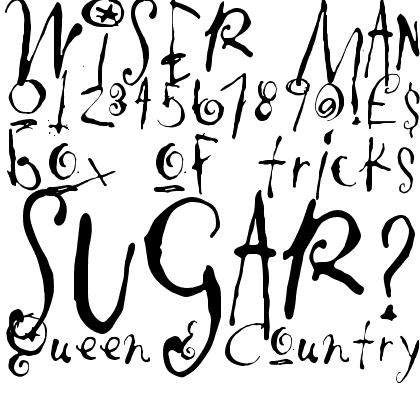 WiSER MAN
0123456789@!ES
box of tricks
SUGAR?
Queen & Country